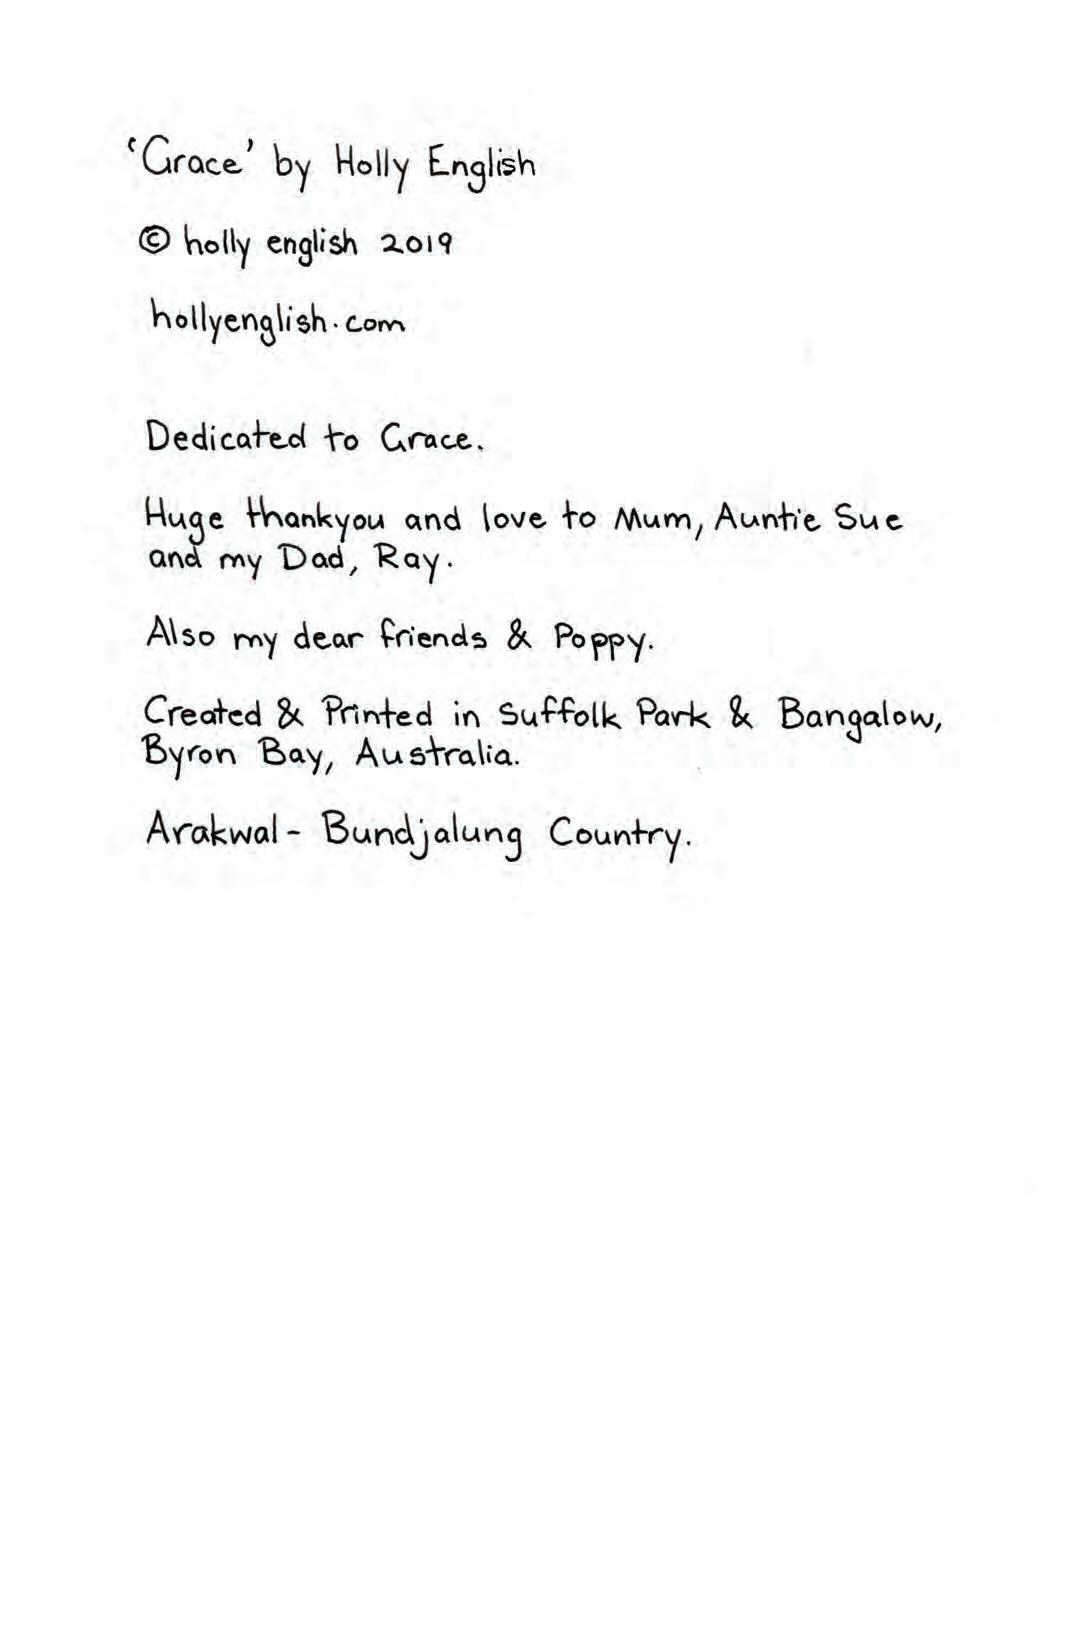 ‘Grace’ by Holly English
© holly english 2019
hollyenglish.com
Dedicated to Grace.
Huge thankyou and love to Mum, Auntie Sue
and my Dad, Ray.
Also my dear friends & Poppy.
Created & Printed in Suffolk Park & Bangalow,
Byron Bay, Australia.
Arakwal - Bundjalung Country.